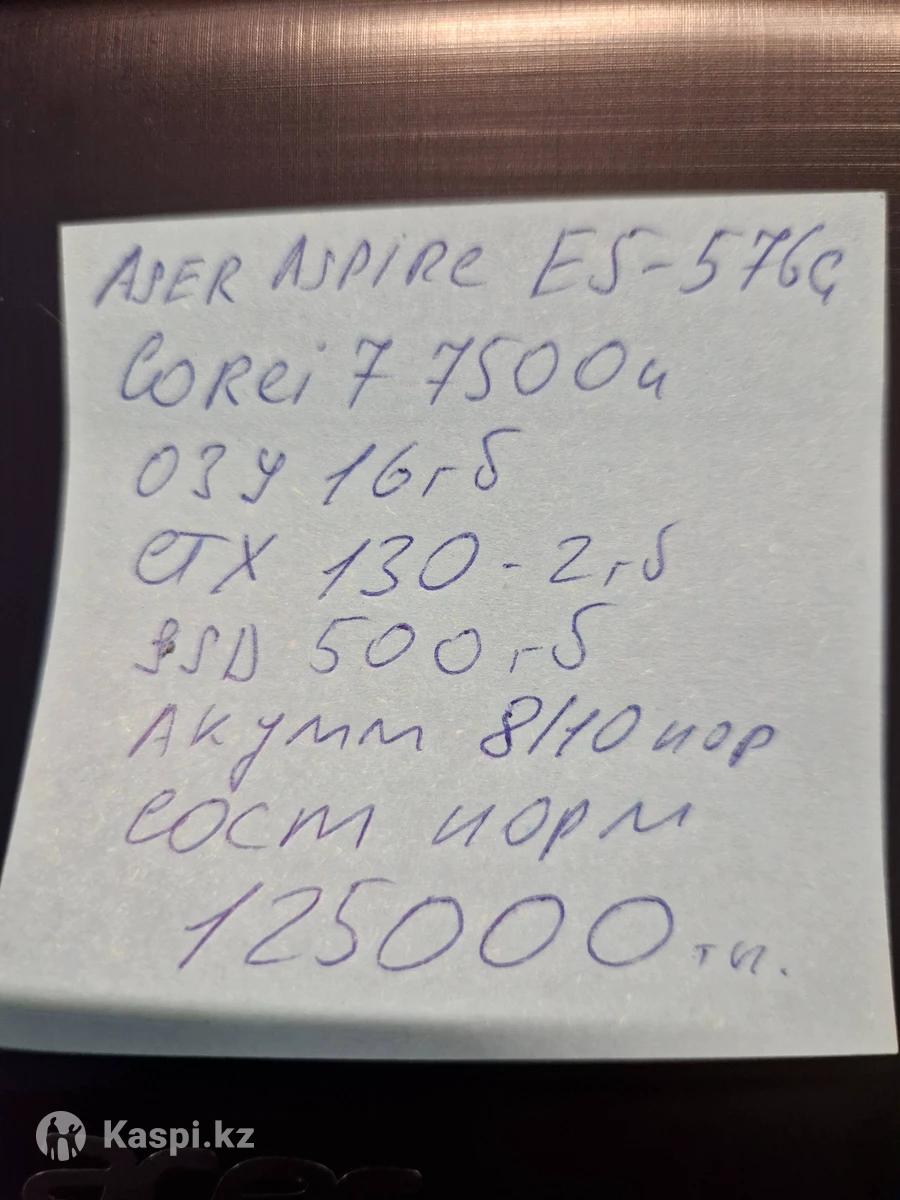 ASER ASPiRe E5-576G
Corei7 7500u
ОЗУ 16гб
GTX 130-2гб
SSD 500гб
Акумм 8/10 нор
Сост норм
125000 тн.
Kaspi.kz
acer